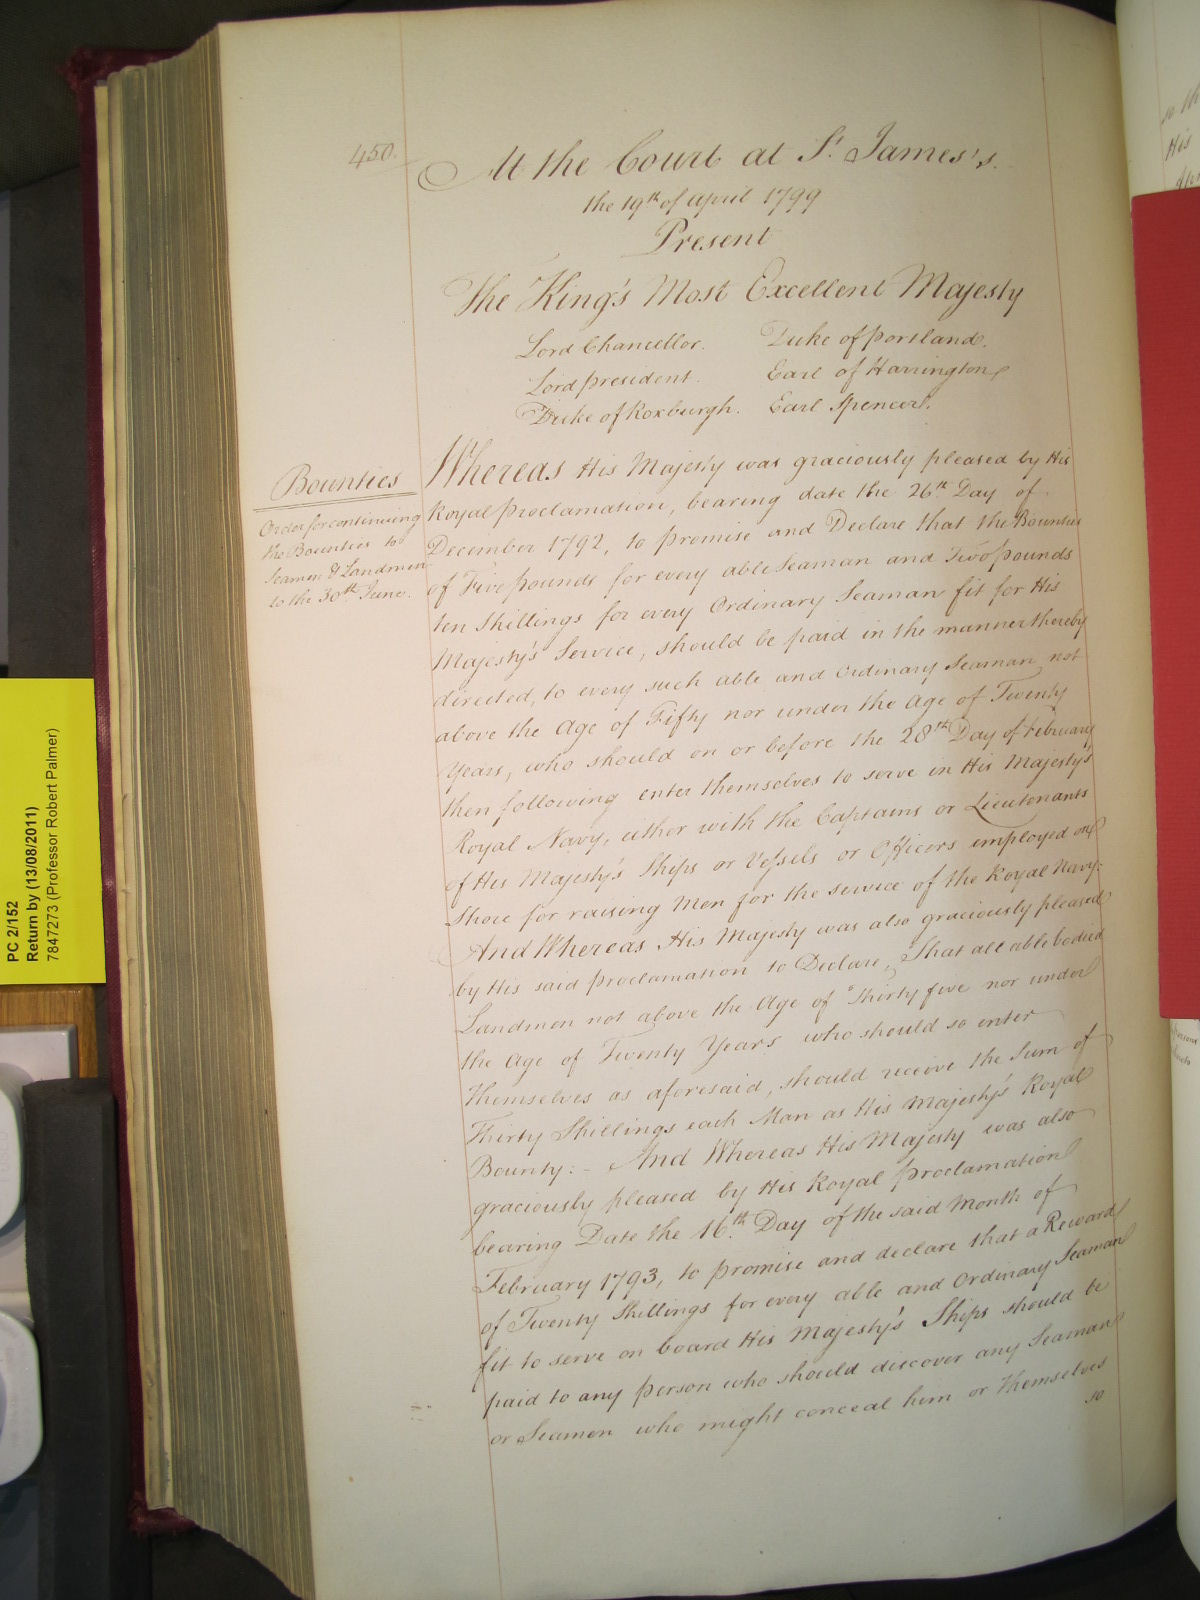 450.
At the Court at St. James's.
the 19th of April 1799
Present
The King's Most Excellent Majesty
Lord Chancellor. Duke of Portland.
Lord President. Earl of Harrington
Duke of Roxburgh. Earl Spencer.
Bounties
Order for continuing
the Bounties to
Seamen & Landmen
to the 30th June.
Whereas His Majesty was graciously pleased by His
Royal Proclamation, bearing date the 26th Day of
December 1792, to promise and Declare that the Bounties
of Five pounds for every able Seaman and Two pounds
ten Shillings for every Ordinary Seaman fit for His
Majesty's Service, should be paid in the manner thereby
directed, to every such able and Ordinary Seaman, not
above the Age of Fifty nor under the Age of Twenty
Years, who should on or before the 28th Day of February
then following enter themselves to serve in His Majesty's
Royal Navy, either with the Captains or Lieutenants
of His Majesty's Ships or Vessels or Officers employed on
Shore for raising Men for the service of the Royal Navy:
And Whereas His Majesty was also graciously pleased
by His said Proclamation to Declare, That all able bodied
Landmen not above the Age of Thirty five nor under
the Age of Twenty Years who should so enter
themselves as aforesaid, should receive the Sum of
Thirty Shillings each Man as His Majesty's Royal
Bounty: - And Whereas His Majesty was also
graciously pleased by His Royal Proclamation
bearing Date the 16th Day of the said Month of
February 1793, to promise and declare that a Reward
of Twenty Shillings for every able and Ordinary Seaman
fit to serve on board His Majesty's Ships should be
paid to any person who should discover any Seaman
or Seamen who might conceal him or themselves
so
PC 2/152
Return by (13/08/2011)
7847273 (Professor Robert Palmer)
so th
His